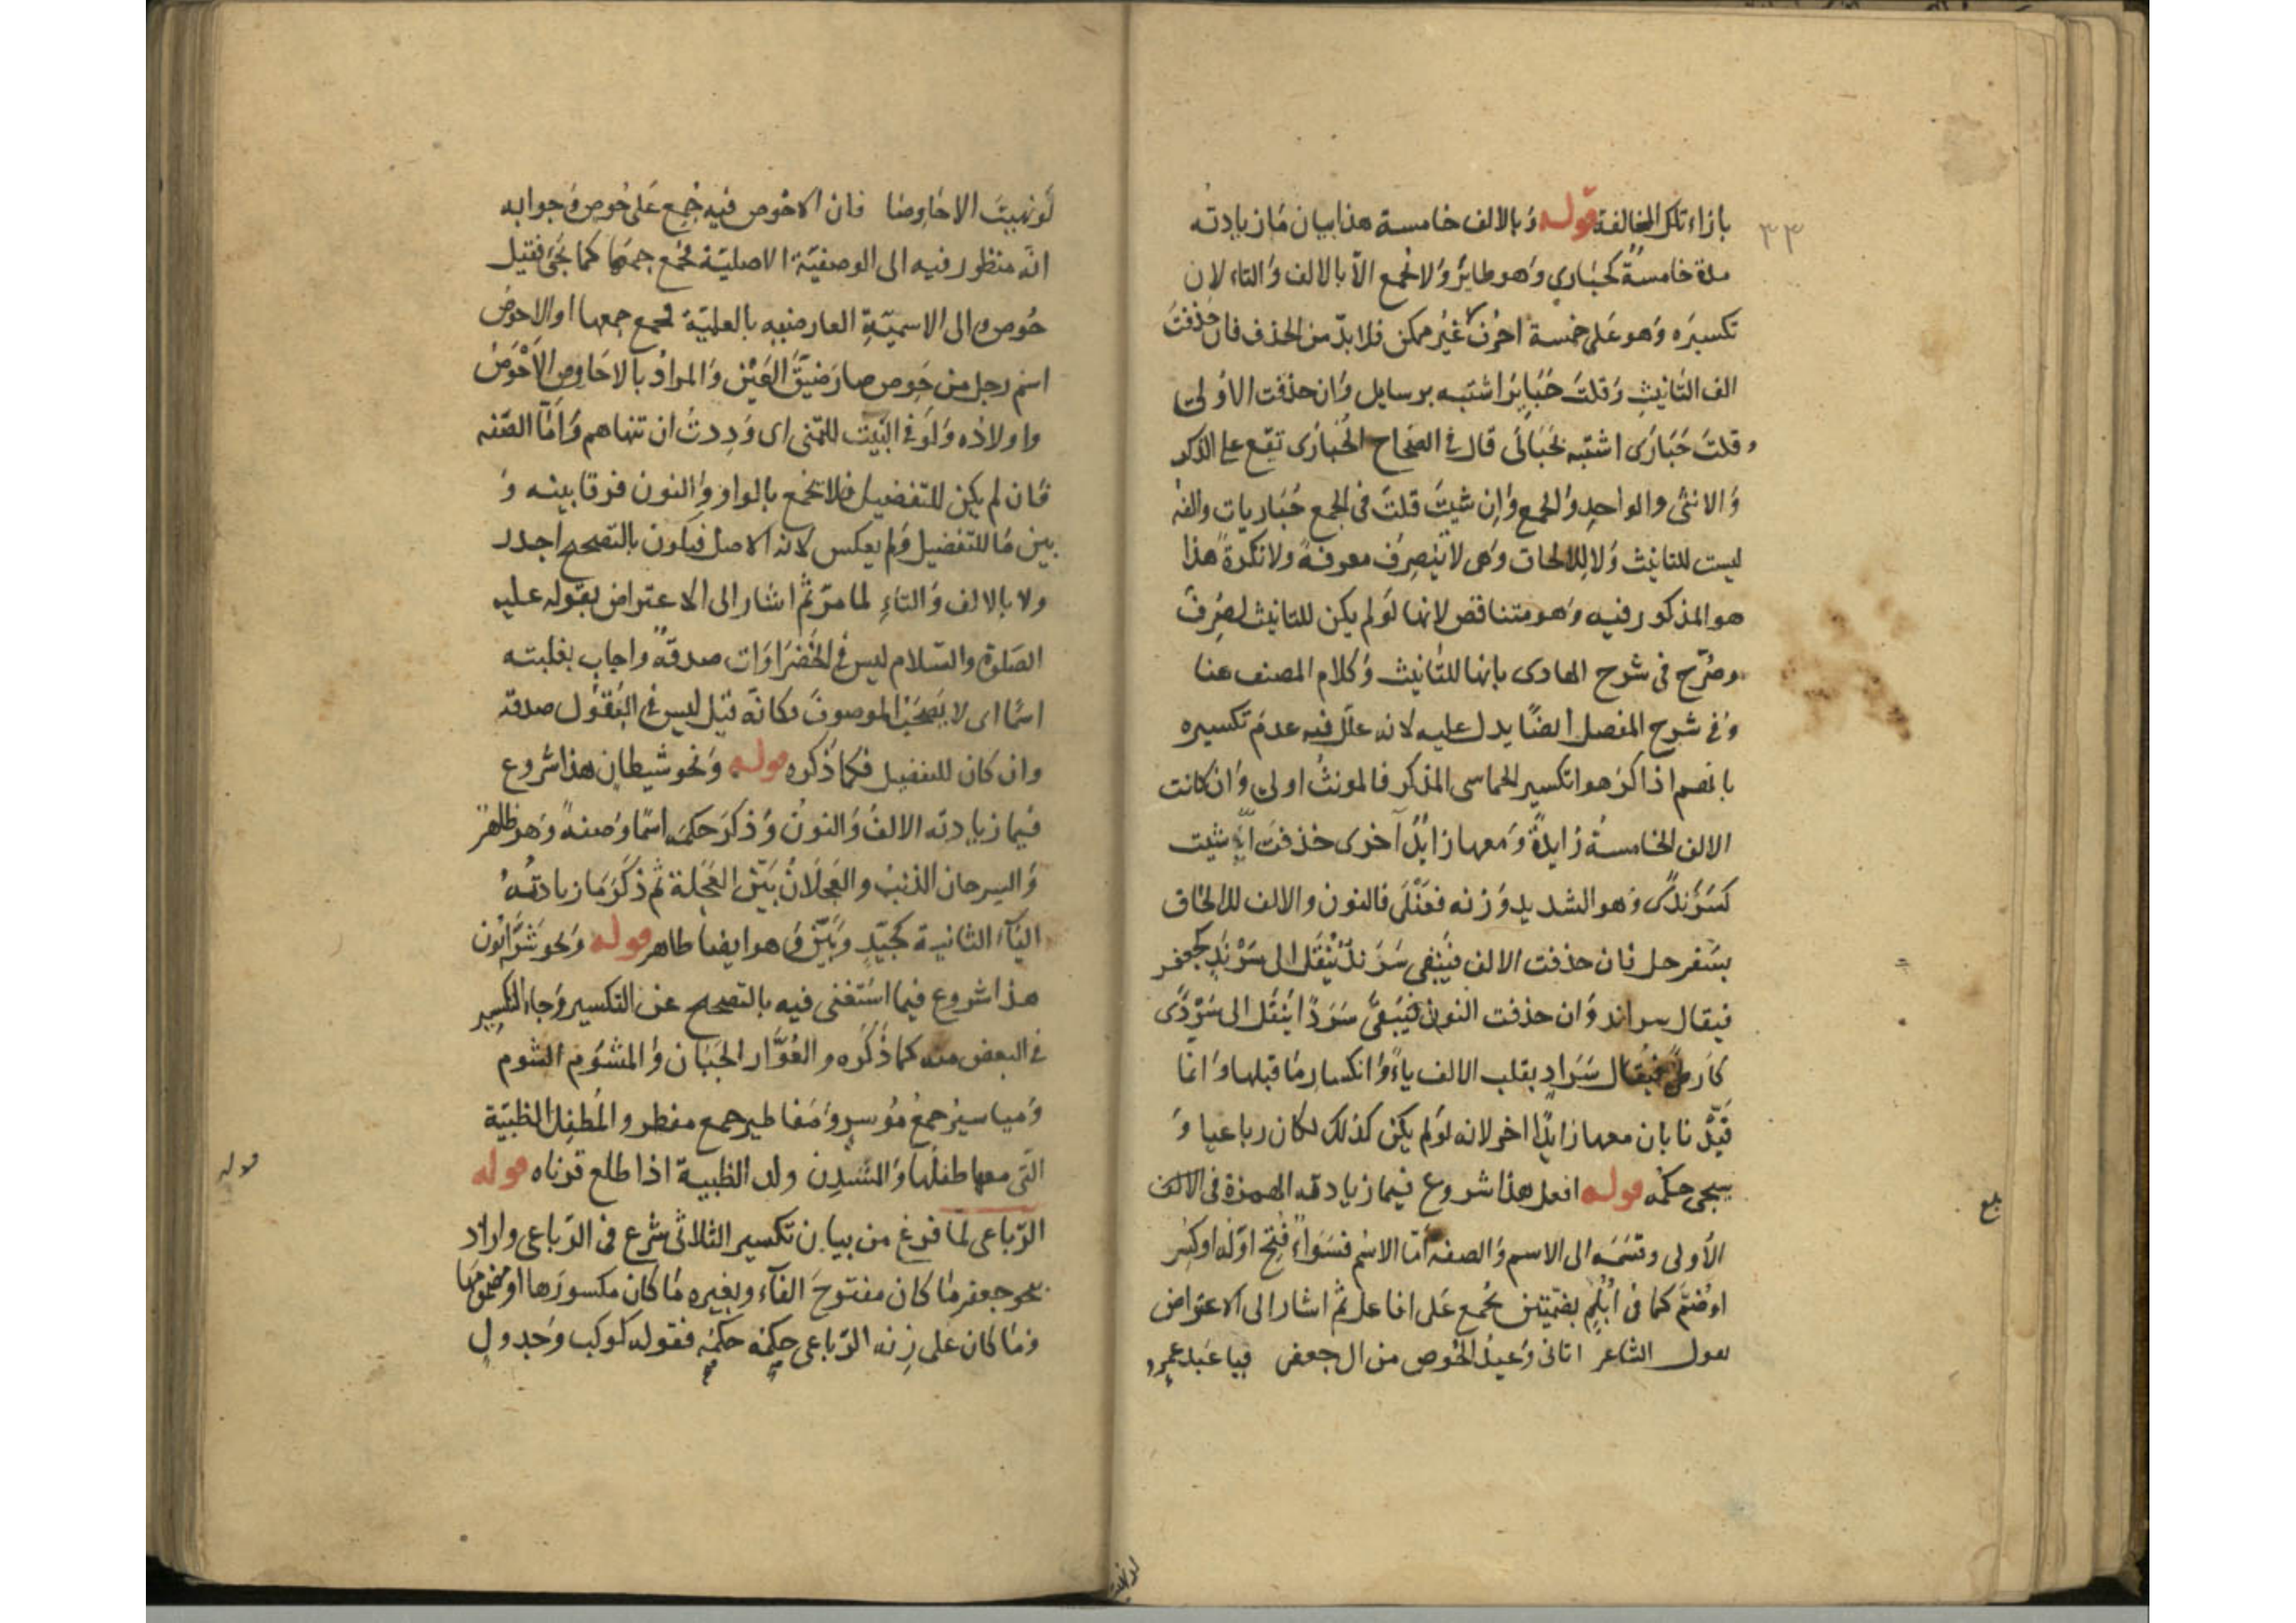 ٣٣
بازاء تلك المخالفة قوله وبالالف خامسة هذا بيان ما زيادته
مدة خامسة كحباري وهو طاير ولا يجمع الا بالالف والتاء لان
تكسيره وهو على خمسة احرف غير ممكن فلا بد من الحذف فان حذفت
الف التانيث وقلت حباير اشتبه برسايل وان حذفت الاولى
وقلت حبارى اشتبه بحبالى قال في الصحاح الحبارى تقع على الذكر
والانثى والواحد والجمع وان شيت قلت في الجمع حباريات والفه
ليست للتانيث ولا للالحاق وهي لا ينصرف معرفة ولا نكرة هذا
هو المذكور فيه وهو متناقض لانها لو لم يكن للتانيث لصرف
وصرح في شرح الهادى بانها للتانيث وكلام المصنف هنا
وفي شرح المفصل ايضا يدل عليه لانه علل فيه عدم تكسيره
بانهم اذا كرهوا تكسير الخماسى المذكر فالمونث اولى وان كانت
الالف الخامسة زايدة ومعها زايد آخرى حذفت ايه شيت
كسرندى وهو الشديد وزنه فعنلى فالنون والالف للالحاق
بسفرجل فان حذفت الالف فيبقى سرند ينقل الى سرند كجعفر
فيقال سراند وان حذفت النون فيبقى سردا ينقل الى سردى
كارطى فيقال سراد بقلب الالف ياء وانكسار ما قبلها وانما
قيدنا بان معها زايدا اخر لانه لو لم يكن كذلك لكان رباعيا و
سيجى حكمه قوله افعل هذا شروع فيما زيادته الهمزة في الالف
الأولى وقسمه الى الاسم والصفة أما الاسم فسواء فتح اوله او كسر
او ضم كما في ابلم بضمتين يجمع على افاعل ثم اشار الى الاعتراض
بقول الشاعر اتانى وعيد الحوص من ال جعفر فيا عبد عمرو
بلغ
لو نهيت الاحاوصا فان الاحوص فيه جمع على حوص وجوابه
انه منظور فيه الى الوصفية الاصلية فجمع جمعها كما يجئ فقيل
حوص والى الاسمية العارضيه بالعلمية فجمع جمعها او الاحوص
اسم رجل من حوص صار ضيق العين والمراد بالاحاوص الأحوص
واولاده ولو في البيت للتمنى اى وددت ان تنهاهم وأما الصفه
فان لم يكن للتفضيل فلا يجمع بالواو والنون فرقا بينه و
بين ما للتفضيل ولم يعكس لانه الاصل فيكون بالتصحيح اجدر
ولا بالالف والتاء لما مر ثم اشار الى الاعتراض بقوله عليه
الصلوة والسلام ليس في الخضراوات صدقة واجاب بغلبته
اسما اى لا يصحب الموصوف فكانه قيل ليس في البقول صدقة
وان كان للتفضيل فكما ذكره قوله ونحو شيطان هذا شروع
فيما زيادته الالف والنون وذكر حكمه اسما وصفة وهو ظاهر
والسرحان الذئب والعجلان بين العجلة ثم ذكر ما زيادته
الياء الثانية كجيد وبين وهو ايضا ظاهر قوله ونحو شرابون
هذا شروع فيما استغنى فيه بالتصحيح عن التكسير وجاء التكسير
في البعض منه كما ذكره والعوار الجبان والمشؤم الشوم
ومياسير جمع موسر ومفاطير جمع مفطر والمطفل الظبية
التى معها طفلها والمشدن ولد الظبية اذا طلع قرناه قوله
الرباعى لما فرغ من بيان تكسير الثلاثى شرع في الرباعى واراد
بنحو جعفر ما كان مفتوح الفآء وبغيره ما كان مكسورها او مضمومها
وما كان على زنه الرباعى حكمه حكمه فقوله كوكب وجدول
قوله
لو نهيت